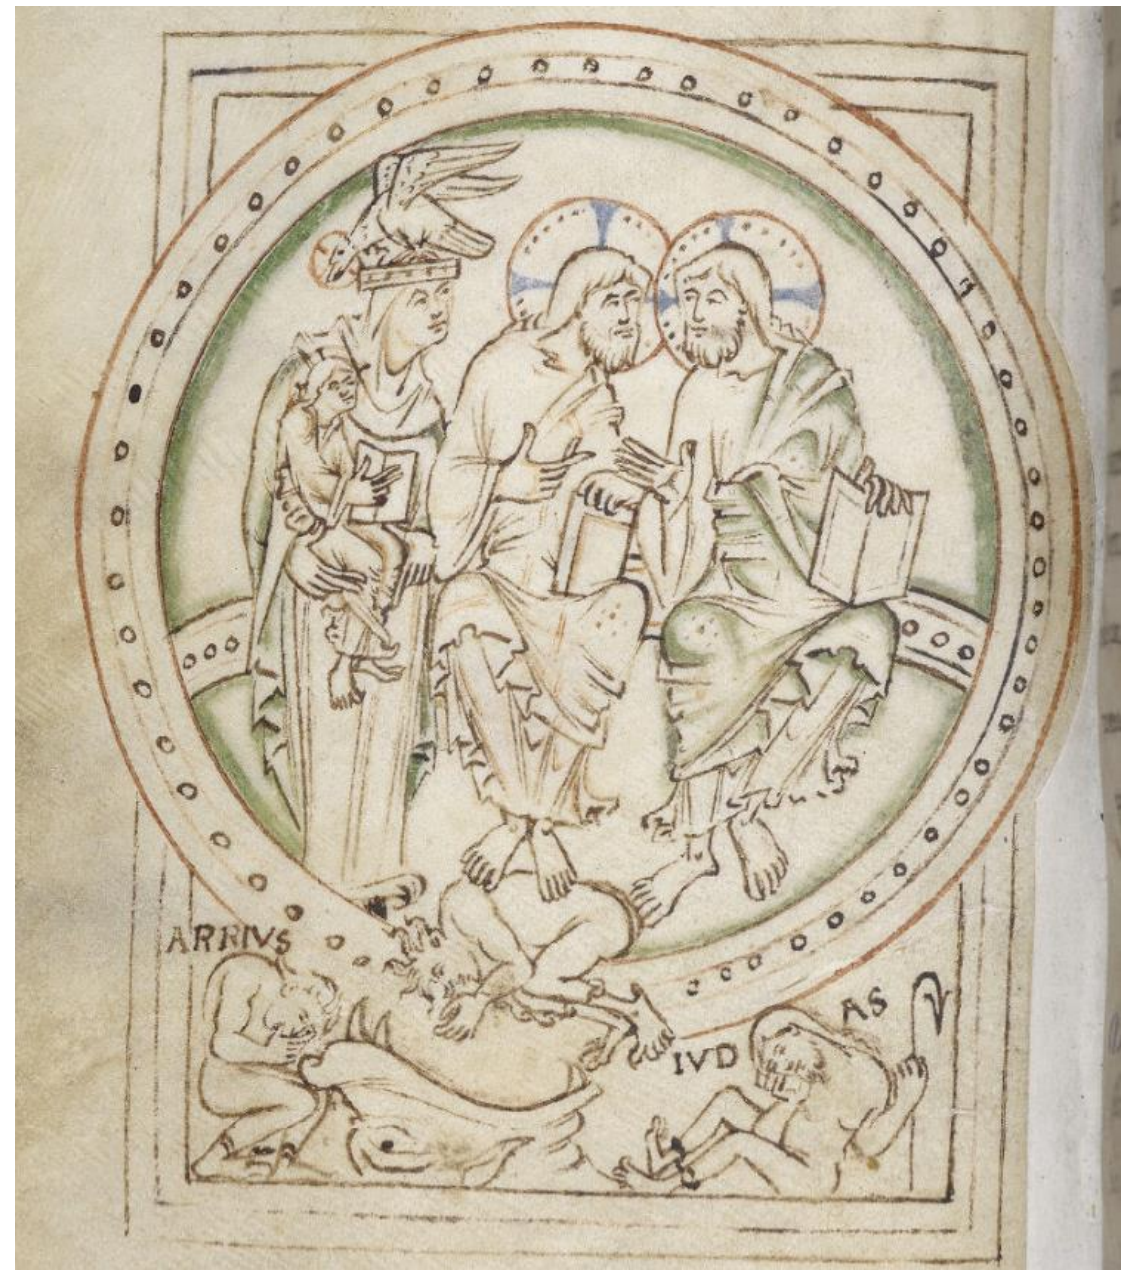 ARRIVS
IVD
AS